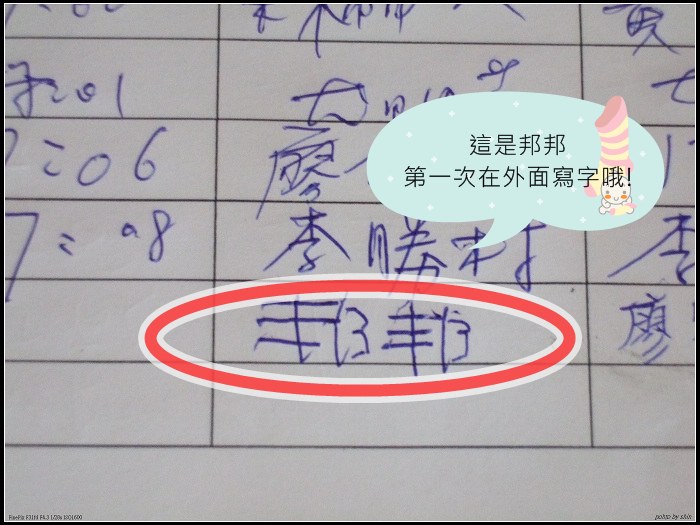 這是邦邦
第一次在外面寫字哦!
黃
7:06 廖
7:08 李勝村 李
邦邦 廖
FinePix F31fd F4.3 1/29s ISO1600 photo by shin